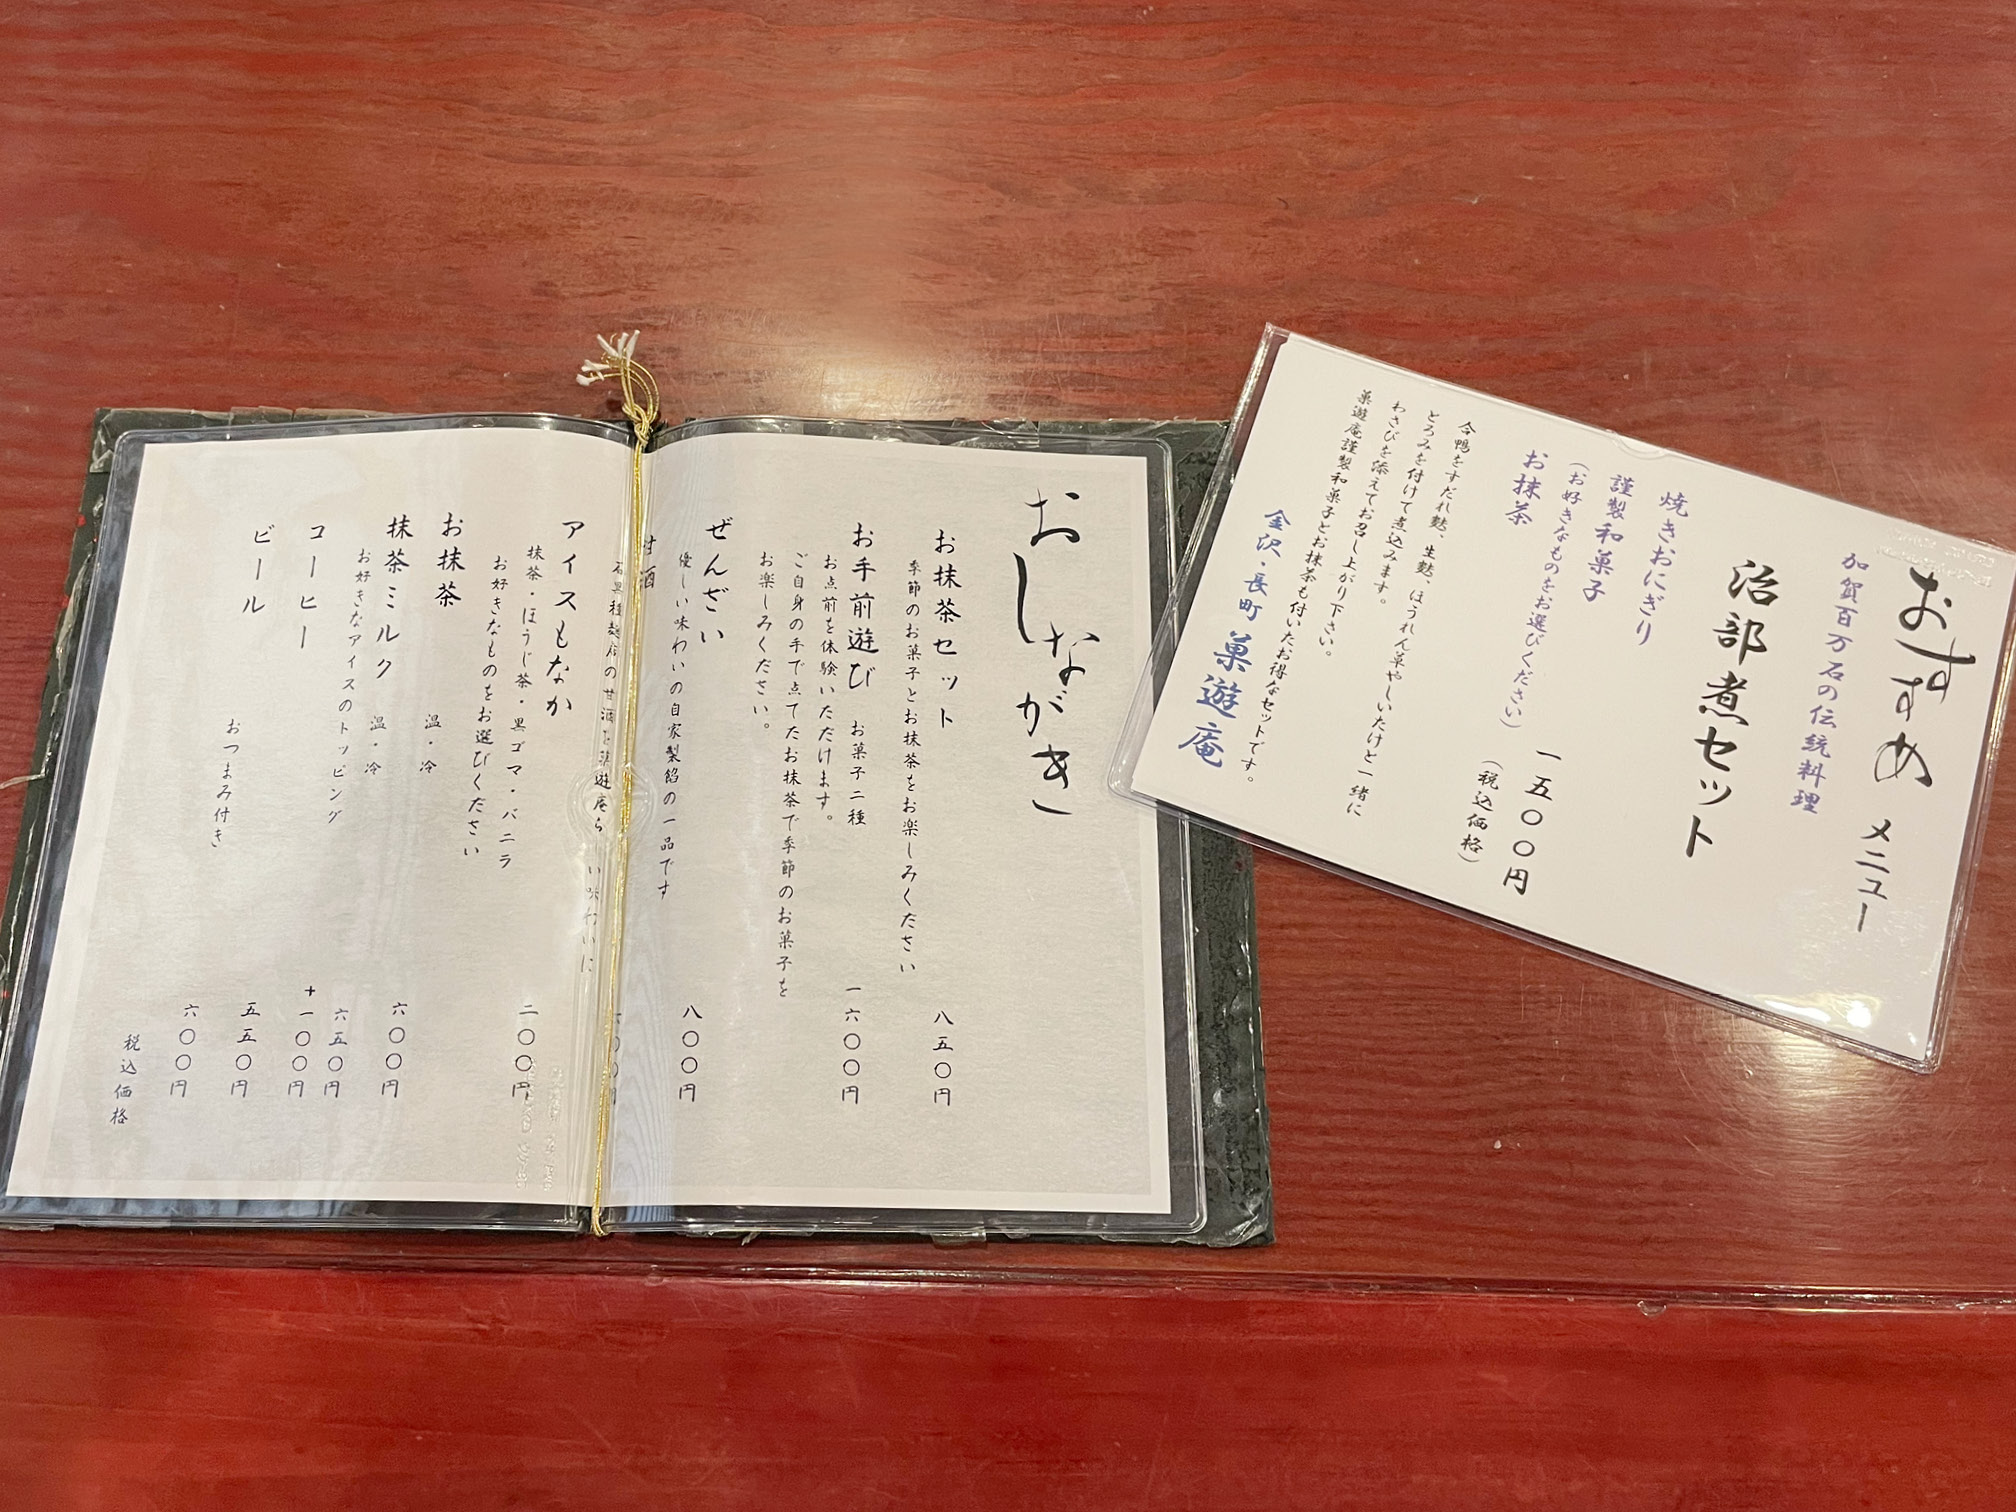 おすすめ メニュー
加賀百万石の伝統料理
治部煮セット
焼きおにぎり
謹製和菓子
（お好きなものをお選びください）
お抹茶
一五〇〇円
（税込価格）
合鴨をすだれ麩、生麩、ほうれん草やしいたけと一緒に
とろみを付けて煮込みます。
わさびを添えてお召し上がり下さい。
菓遊庵謹製和菓子とお抹茶も付いたお得なセットです。
金沢・長町 菓遊庵
おしながき
お抹茶セット 八五〇円
季節のお菓子とお抹茶をお楽しみください
お手前遊び お菓子二種 一六〇〇円
お点前を体験いただけます。
ご自身の手で点てたお抹茶で季節のお菓子を
お楽しみください。
ぜんざい 八〇〇円
優しい味わいの自家製餡の一品です
甘酒
の甘酒を菓遊庵ら い味わいに
アイスもなか 二〇〇円
抹茶・ほうじ茶・黒ゴマ・バニラ
お好きなものをお選びください
お抹茶 温・冷 六〇〇円
抹茶ミルク 温・冷 六五〇円
お好きなアイスのトッピング +一〇〇円
コーヒー 五五〇円
ビール おつまみ付き 六〇〇円
税込価格